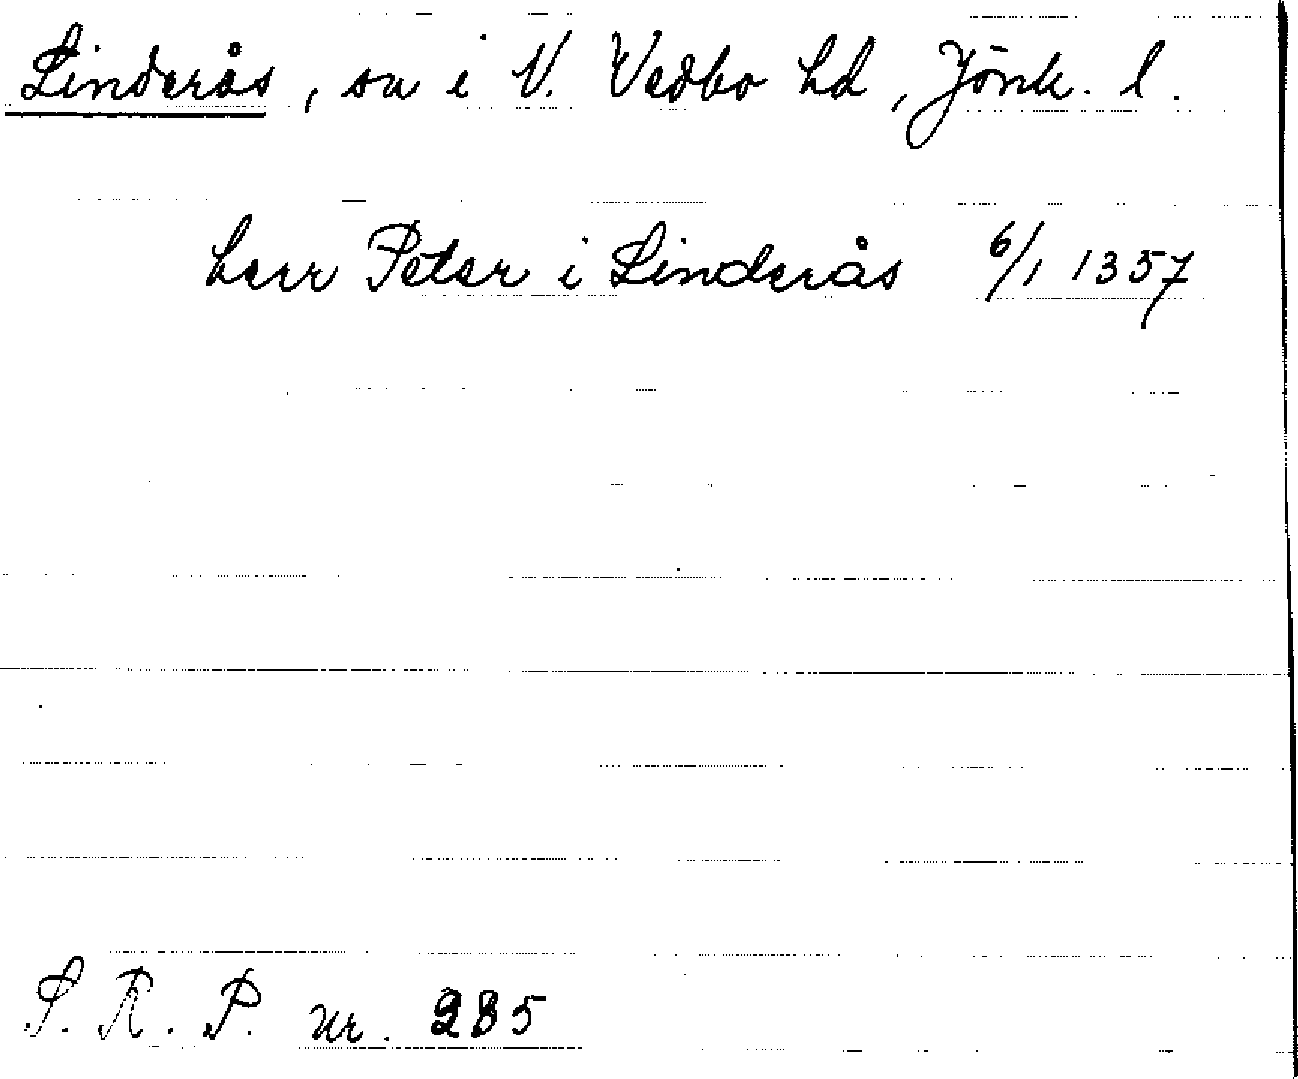 Linderås, sn i V. Vedbo hd, Jönk. l.
herr Peter i Linderås 6/1 1357
S. R. P. nr. 285